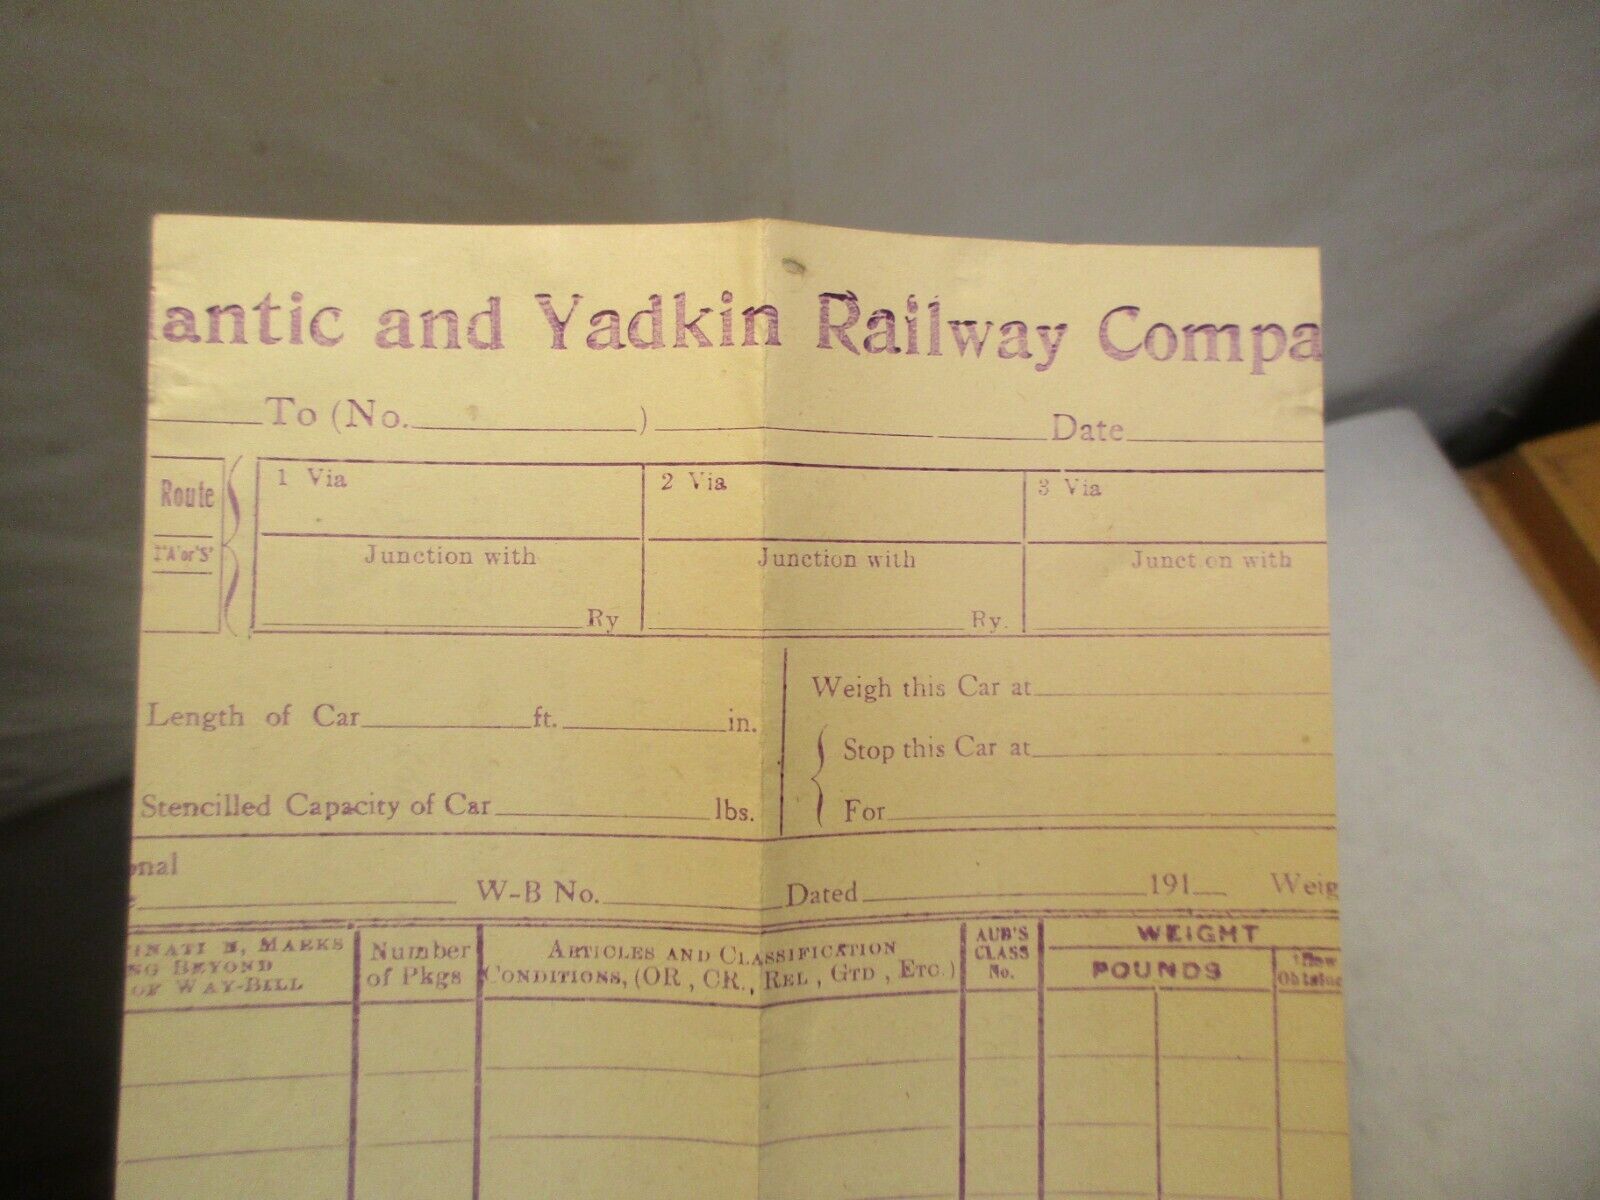 lantic and Yadkin Railway Compa
To (No. ) Date
Route 1 Via 2 Via 3 Via
'A' or 'S' Junction with Junction with Junct on with
Ry Ry.
Weigh this Car at
Length of Car ft. in.
Stop this Car at
Stencilled Capacity of Car lbs.
For
onal
W-B No. Dated 191 Weig
INATI N, MARKS
NG BEYOND
OF WAY-BILL
Number
of Pkgs
ARTICLES AND CLASSIFICATION
CONDITIONS, (OR, CR., REL, GTD, ETC.)
AUD'S
CLASS
No.
WEIGHT
POUNDS
How
Obtaine